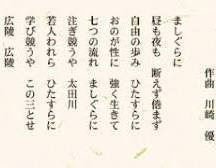 作曲 川崎 優
ましぐらに
昼も夜も 断えず倦まず
自由の歩み ひたすらに
おのが性に 強く生きて
七つの流れ ましぐらに
注ぎ競うや 太田川
若人われら ひたすらに
学び競うや この三とせ
広陵 広陵